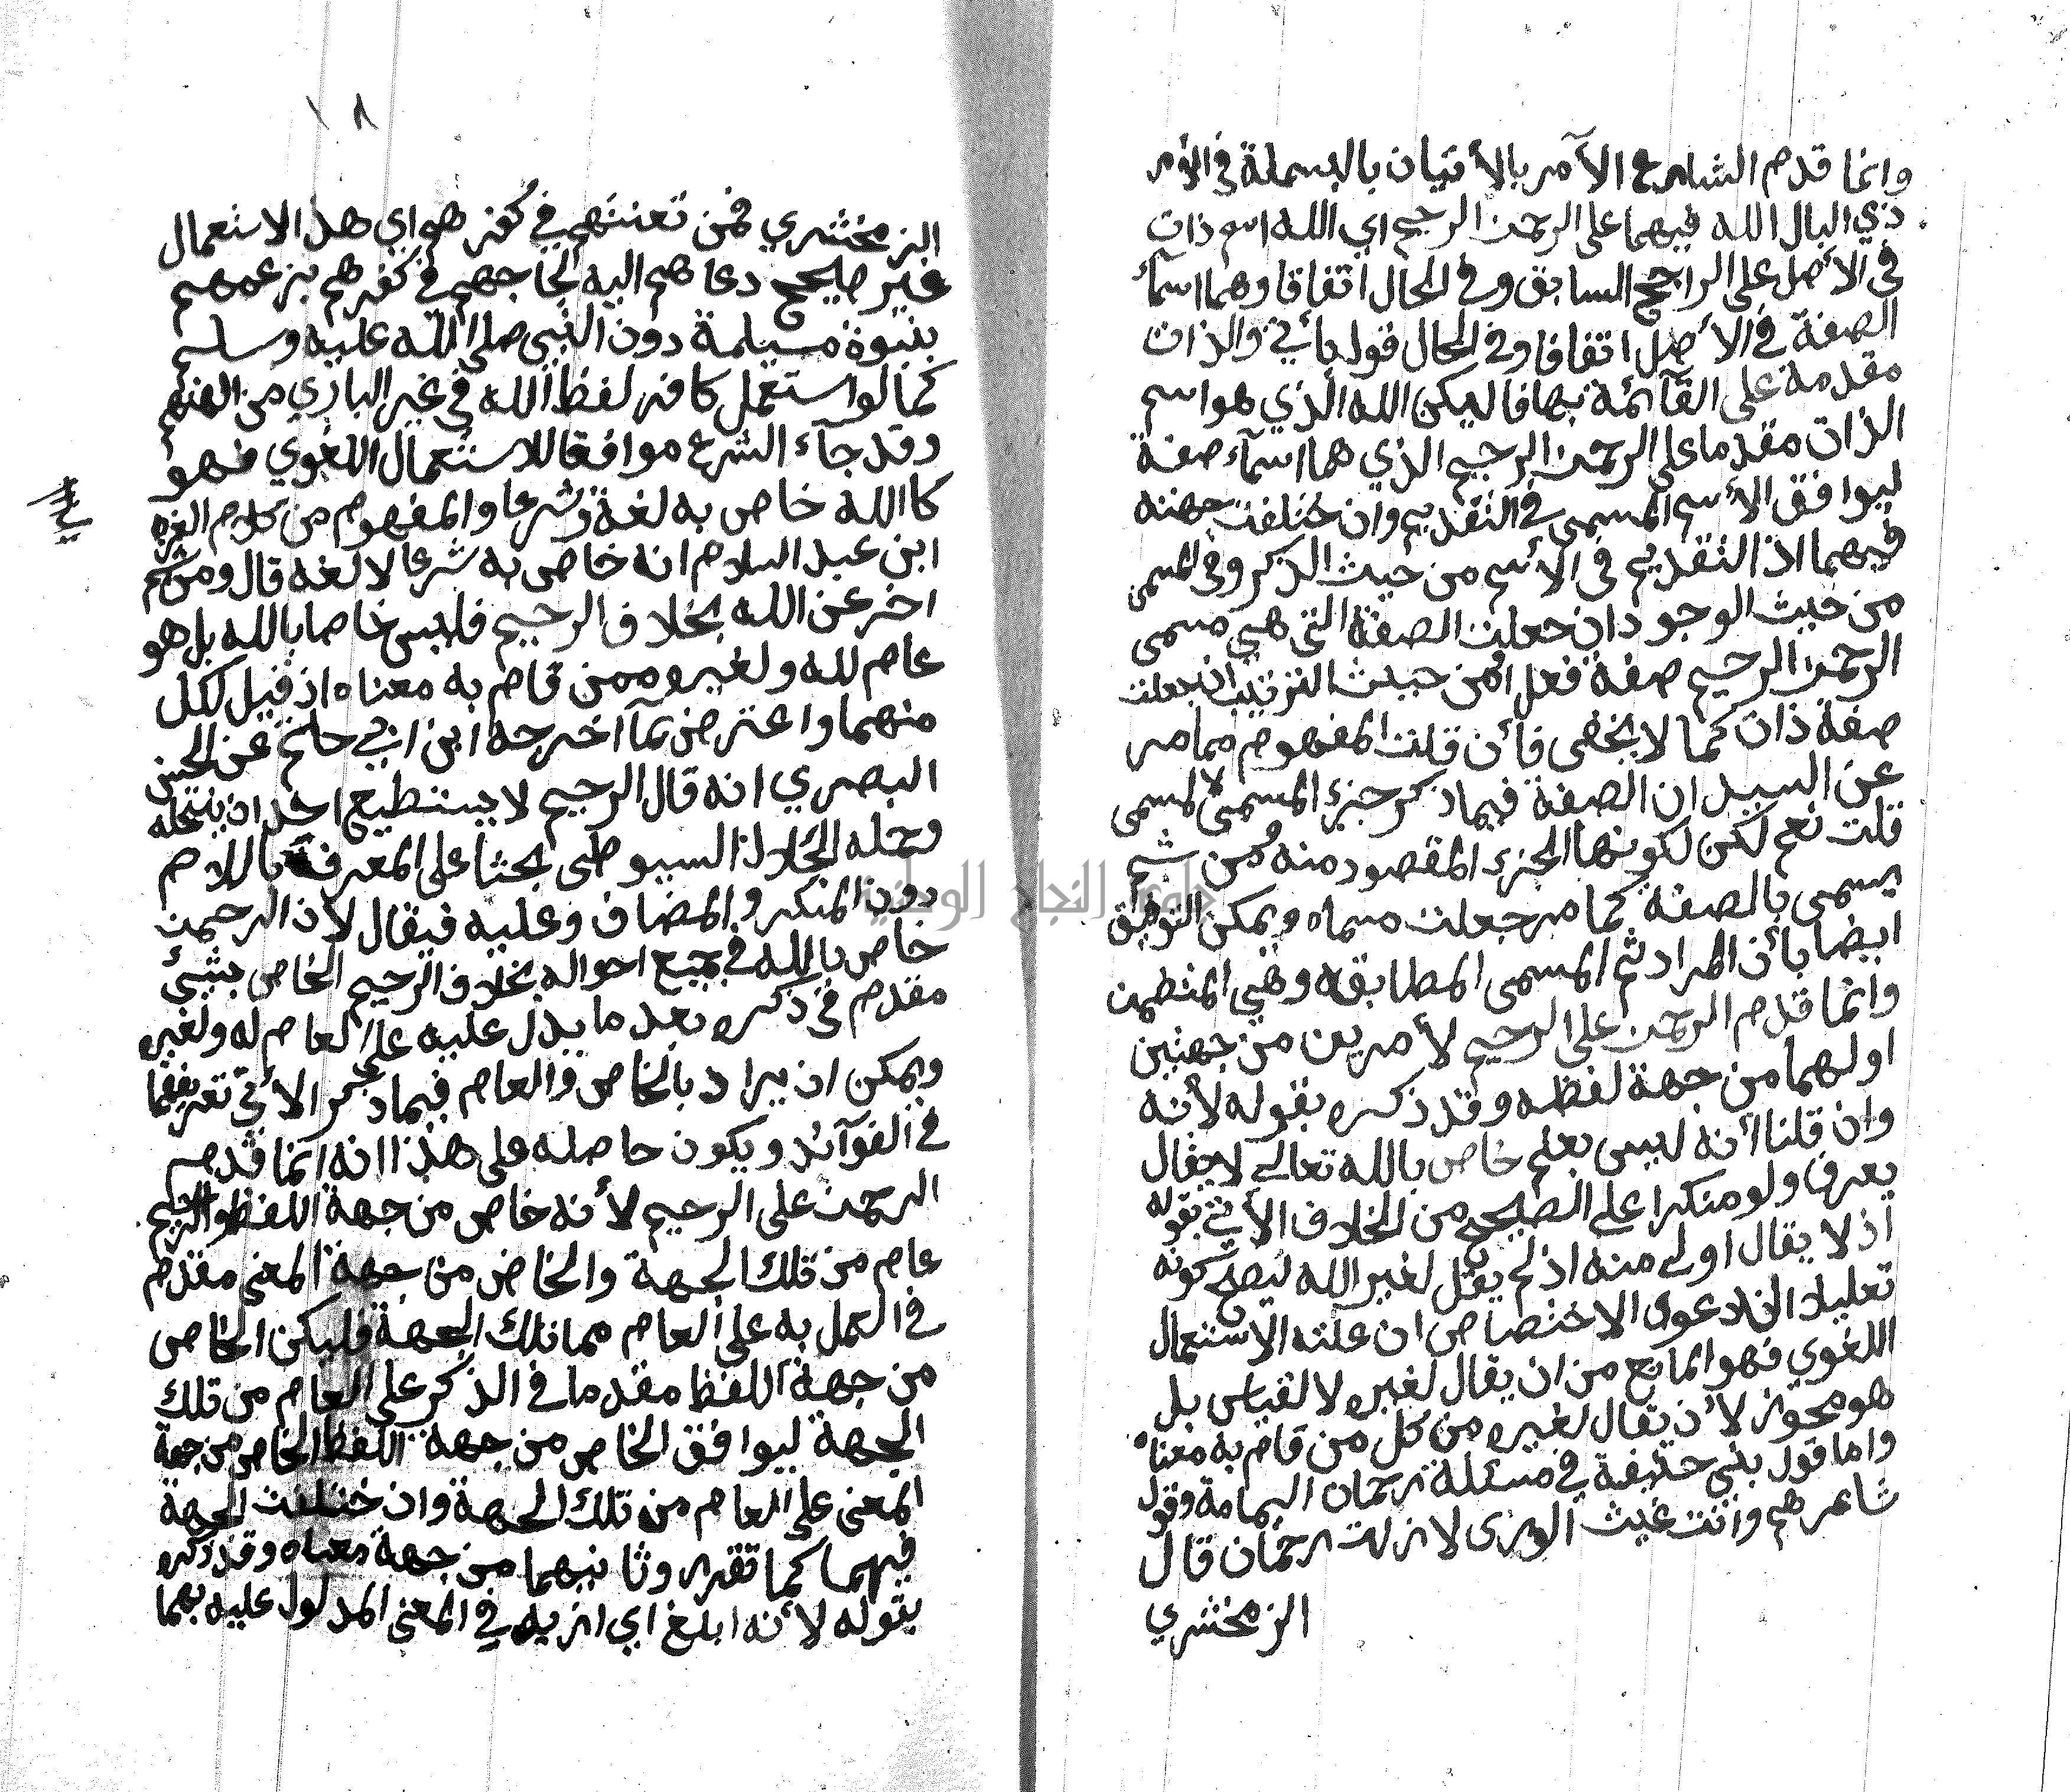 وانما قدم الشارع الآمر بالأتيان بالبسملة في الأمر
ذي البال الله فيهما على الرحمن الرحيم اي الله اسم ذات
في الأصل على الراجح السابق وفي الحال اتفاقا وهما اسمآء
الصفة في الأصل اتفاقا وفي الحال قولا يأتي والذات
مقدمة على القآئمة بها فاليكن الله الذي هو اسم
الذات مقدما على الرحمن الرحيم الذي هما اسمآء صفة
ليوافق الأسم المسمى في التقديم وان ختلفت جهته
فيهما اذ التقديم في الأسم من حيث الذكر وفي المسمى
من حيث الوجود ان جعلت الصفة التي هي مسمى
الرحمن الرحيم صفة فعل او من حيث الترتيب ان جعلت
صفة ذات كما لا يخفى فأن قلت المفهوم مما مر
عن السيد ان الصفة فيما ذكر جزء المسمى لا المسمى
قلت نعم لكن لكونها الجزء المقصود منه ومن ثم
يسمى بالصفة كما مر جعلت مسماه ويمكن التوفيق
ايضا بأن المراد ثم المسمى المطابقه وهي المتضمن
وانما قدم الرحمن على الرحيم لأمرين من جهتين
اولهما من جهة لفظه وقد ذكره بقوله لأنه
وان قلنا أنه ليس بعلم خاص بالله تعالى لا يقال
يعرف ولو منكرا على الصحيح من الخلاف الأتي بقوله
اذ لا يقال اولى منه اذ لم يقل لغير الله ليصح كونه
تعليلا لدعوى الاختصاص ان علته الاستعمال
اللغوي فهو المانع من ان يقال لغيره لا القياس بل
هو مجوز لأن يقال لغيره من كل من قام به معناه
واما قول بني حنيفة في مسيلمة رحمان اليمامة وقول
شاعرهم وانت غيث الورى لا زلت رحمان قال
الزمخشري
١٨
الزمخشري فمن تعنتهم في كفر هو اي هذا الاستعمال
غير صحيح دعاهم اليه لجاجهم في كفرهم بزعمهم
بنبوة مسيلمة دون النبي صلى الله عليه وسلم
كما لو استعمل كافر لفظ الله في غير الباري من الهتهم
وقد جآء الشرع موافقا للاستعمال اللغوي فهو
كا الله خاص به لغة وشرعا والمفهوم من كلام العز
ابن عبد السلام انه خاص به شرعا لا لغه قال ومن ثم
اخر عن الله بخلاف الرحيم فليس خاصا بالله بل هو
عام لله ولغيره ممن قام به معناه اذ قيل لكل
منهما واعترض بمآ اخرجه ابن ابي حاتم عن الحسن
البصري انه قال الرحيم لا يستطيع احد ان ينتحله
وحمله الجلال السيوطى بحثا على المعرف باللام
دون المنكر والمضاف وعليه فيقال لأن الرحمن
خاص بالله في جميع احواله بخلاف الرحيم الخاص بشئ
مقدم في ذكره بعد ما يدل عليه على العام له ولغيره
ويمكن ان يراد بالخاص والعام فيما ذكر الأتي تعريفهما
في الفوآئد ويكون حاصله على هذا انه انما قدم
الرحمن على الرحيم لأنه خاص من جهة اللفظ والرحيم
عام من تلك الجهة والخاص من جهة المعنى مقدم
في العمل به على العام مما تلك الجهة فليكن الخاص
من جهة اللفظ مقدما في الذكر على العام من تلك
الجهة ليوافق الخاص من جهة اللفظ الخاص من جهة
المعنى على العام من تلك الجهة وان ختلفت الجهة
فيهما كما تقرر وثانيهما من جهة معناه وقد ذكره
بقوله لأنه ابلغ اي ازيد في المعنى المدلول عليه بهما
جامعة النجاح الوطنية